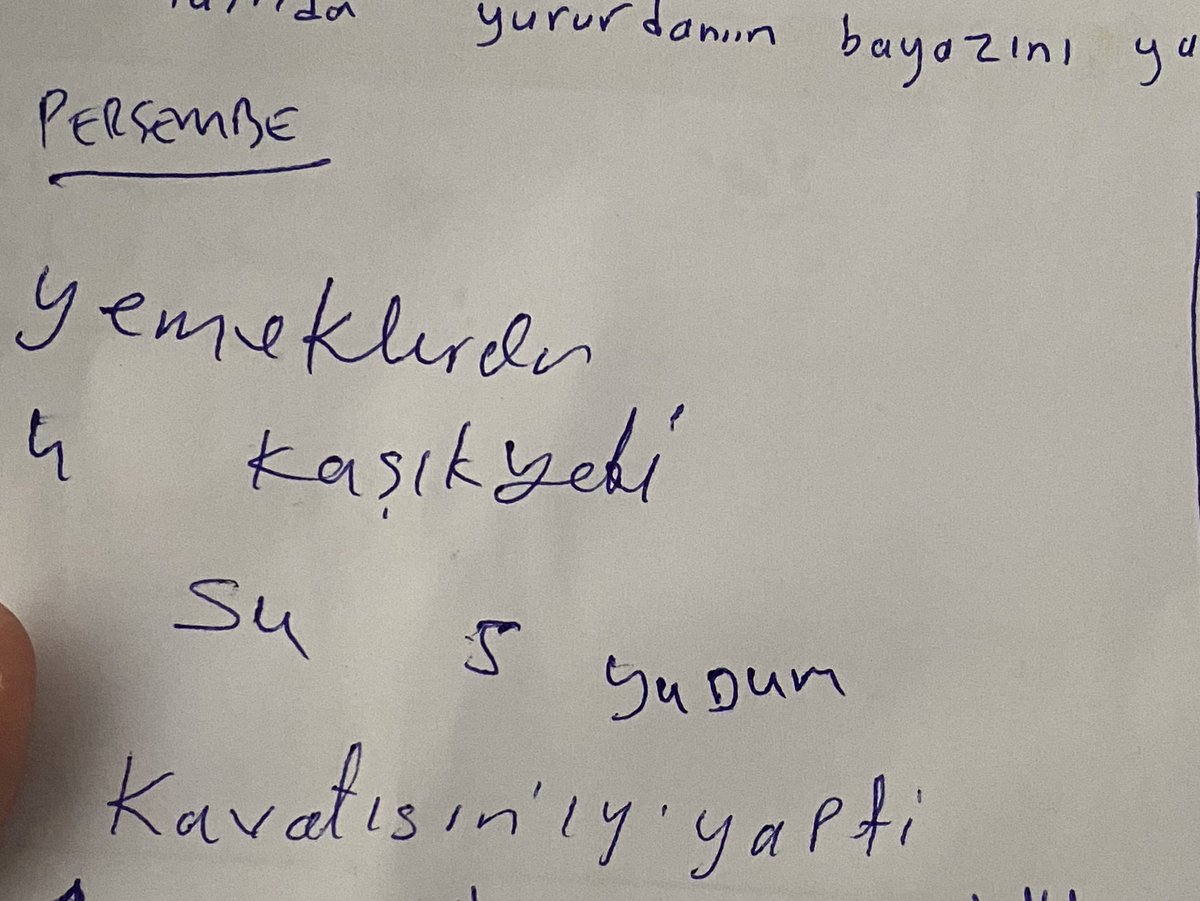 yururdanıın bayazını ya
PERŞEMBE
yemeklerden
4 kaşık yedi
Su 5 yuDum
Kavatısın'ıy'yapti